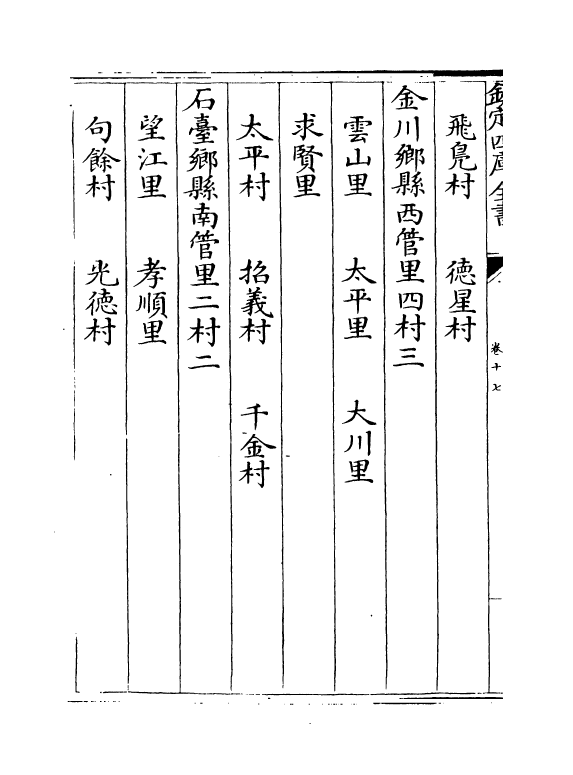 欽定四庫全書
卷十七
飛鳬村 徳星村
金川鄉縣西管里四村三
雲山里 太平里 大川里
求賢里
太平村 招義村 千金村
石臺鄉縣南管里二村二
望江里 孝順里
句餘村 光徳村